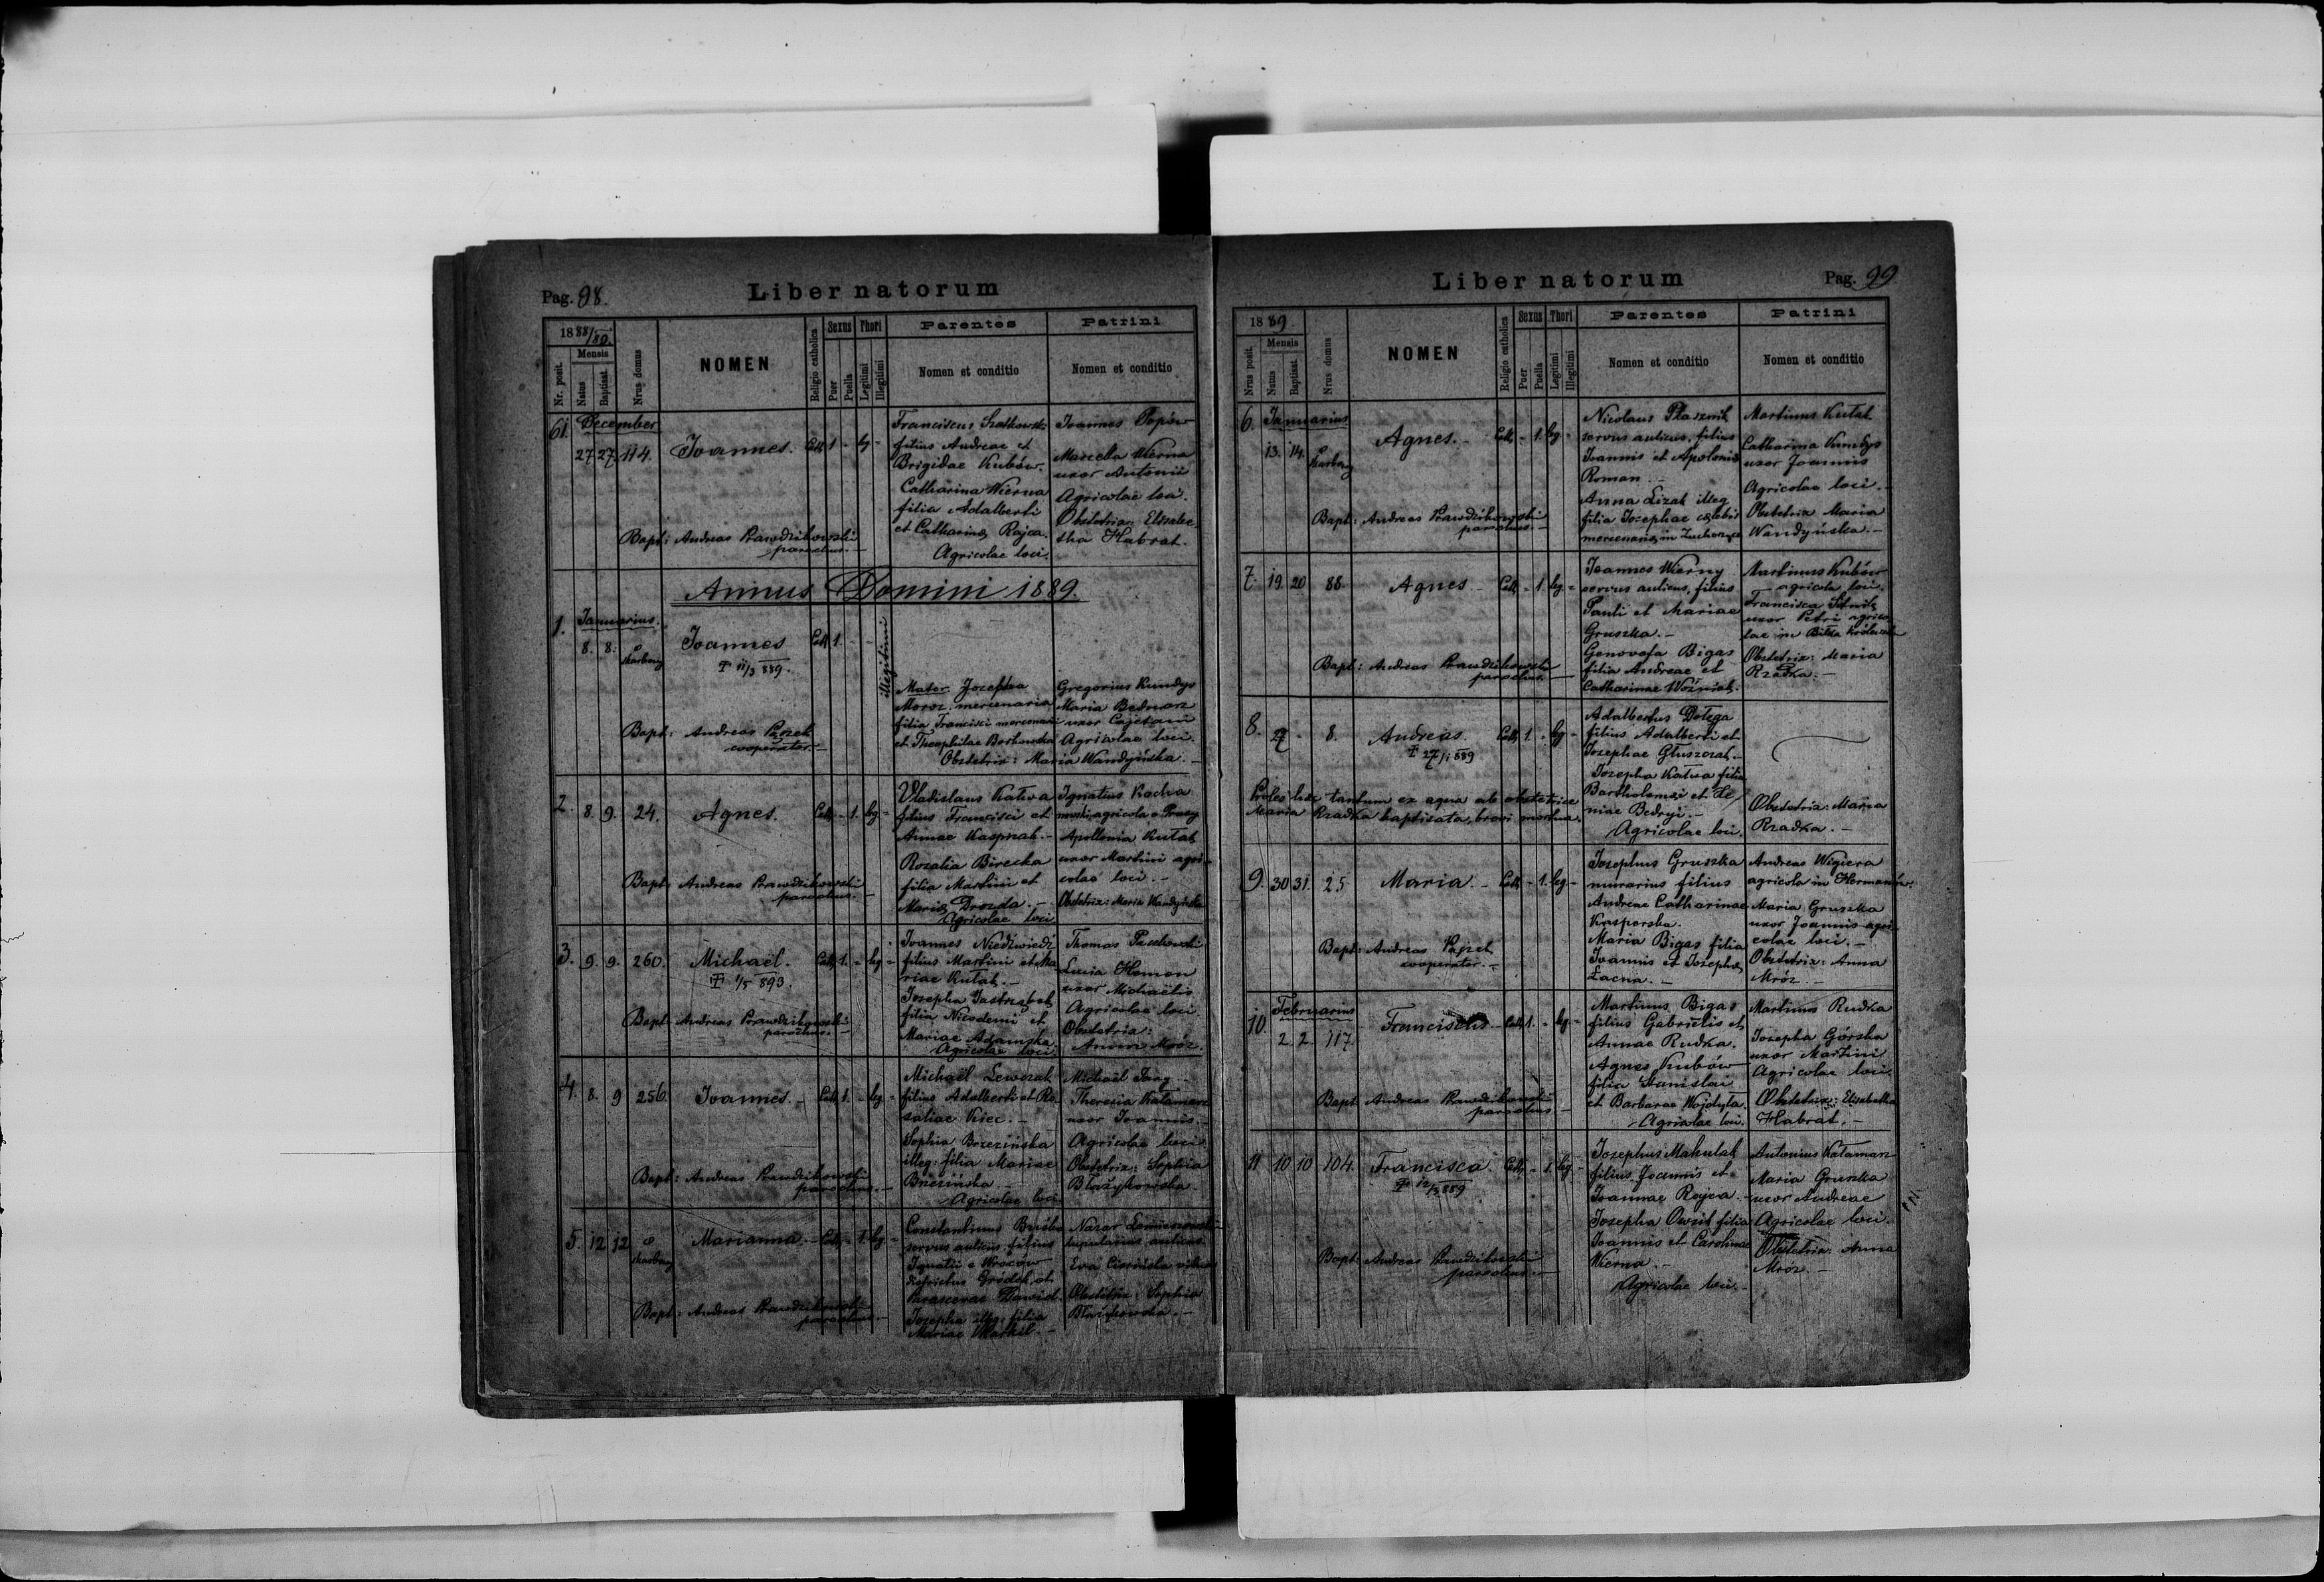 Pag. 98.
Liber natorum
1888/89.
Nr. posit.
Mensis
Natus
Baptisat.
Nrus domus
NOMEN
Religio catholica
Sexus
Puer
Puella
Thori
Legitimi
Illegitimi
Parentes
Nomen et conditio
Patrini
Nomen et conditio
61. December
27 27 114. Joannes. Cath 1 - leg -
Franciscus
filius Andreae et
Brigidae Kubów.
Catharina Wierna
filia Adalberti
et Catharinae Rajca.
Agricolae loci.
Joannes Popów
Marcella Wierna
uxor Antonii
Agricolae loci.
Obstetrix Elisabe
tha Habrat.
Bapt: Andreas Prawdzikowski
parochus.
Annus Domini 1889.
1. Januarius.
8. 8. Joannes Cath 1. -
illegitimi
† 11/3 889.
Mater Josepha
Moroz mercenaria
filia Francisci mercenarii
et Theophilae Borkowska
Gregorius Kundys
Maria Bednarz
uxor Cajetani
Agricolae loci.
Obstetrix: Maria Wandyńska.
Bapt: Andreas Paszek
cooperator.
2. 8. 9. 24. Agnes. Cath - 1. leg -
Vladislaus Kalwa
filius Francisci et
Annae Kasprzak.
Rozalia Birecka
filia Martini et
Mariae Drozda.
Agricolae loci
Ignatius Kocha
Apollonia Kutał
uxor Martini agri
colae loci.
Obstetrix: Maria Wandyńska
Bapt: Andreas Prawdzikowski
parochus.
3. 9. 9. 260. Michaël. Cath 1. - leg -
† 1/5 893.
Joannes Niedźwiedź
filius Martini et Ma
riae Kutał.
Josepha Jastrząbek
filia Nicodemi et
Mariae Adamska.
Agricolae loci
Thomas Paczkowski
Lucia Homon
uxor Michaëlis
Agricolae loci
Obstetrix:
Anna Mróz.
Bapt: Andreas Prawdzikowski
parochus.
4. 8. 9 256. Joannes. Cath 1. - leg -
Michaël Lewczak
filius Adalberti et Ro
saliae Kiec.
Sophia Brzezińska
illeg: filia Mariae
Brzezińska
Agricolae loci
Michaël
Theresia Katamarz
uxor Joannis
Agricolae loci
Obstetrix: Sophia
Błażykowska.
Bapt: Andreas Prawdzikowski
parochus.
5. 12 12 Marianna. Cath - 1. leg -
Constantinus
servus aulicus, filius
Ignatii e
districtus Gródek, et
Parascevae Dawid.
Josepha illeg. filia
Mariae
Nazar
aulicus.
Eva
Obstetrix: Sophia
Błażykowska.
Bapt: Andreas Prawdzikowski
parochus.
Liber natorum
Pag. 99
1889.
Nrus posit.
Mensis
Natus
Baptisat.
Nrus domus
NOMEN
Religio catholica
Sexus
Puer
Puella
Thori
Legitimi
Illegitimi
Parentes
Nomen et conditio
Patrini
Nomen et conditio
6. Januarius
13. 14. Agnes. Cath - 1. leg -
Nicolaus Ptasznik
servus aulicus, filius
Joannis et Apoloniae
Roman
Anna Lizak illeg
filia Josephae
mercenariae in
Martinus Kutał
Catharina Kundys
uxor Joannis
Agricolae loci.
Obstetrix Maria
Wandyńska.
Bapt: Andreas Prawdzikowski
parochus.
7. 19. 20 88. Agnes Cath - 1. leg -
Joannes Wierny
servus aulicus, filius
Pauli et Mariae
Gruszka.
Genovefa Bigas
filia Andreae et
Catharinae Woźniak.
Martinus Kubów
agricola loci.
Francisca Sitnik
uxor Petri agrico
lae in Biłka królewska
Obstetrix: Maria
Rzadka.
Bapt: Andreas Prawdzikowski
parochus.
8. 27. - 8. Andreas. Cath 1. - leg -
† 27/1 889
Adalbertus Dołęga
filius Adalberti et
Josephae Głuszczak.
Josepha Kalwa filia
Bartholomaei et Xe
niae Bedryj.
Agricolae loci.
Proles haec tantum ex aqua ab obstetrice
Maria Rzadka baptisata, brevi mortua.
Obstetrix: Maria
Rzadka.
9. 30 31. 25 Maria. Cath - 1. leg -
Josephus Gruszka
murarius filius
Andreae Catharinae
Kasporska.
Maria Bigas filia
Joannis et Josephae
Łacna.
Andreas Wigiera
agricola in Hermanów.
Maria Gruszka
uxor Joannis agri
colae loci.
Obstetrix: Anna
Mróz.
Bapt: Andreas Paszek
cooperator.
10. Februarius
2. 2. 117. Franciscus Cath 1. - leg -
Martinus Bigas
filius Gabriëlis et
Annae Rudka.
Agnes Kubów
filia Stanislai
et Barbarae Wojdyła.
Agricolae loci.
Martinus Rudka
Josepha Górska
uxor Martini
Agricolae loci.
Obstetrix: Elisabetha
Habrat.
Bapt: Andreas Prawdzikowski
parochus.
11 10 10 104. Francisca. Cath - 1. leg -
† 12/3 889
Josephus Makulak
filius Joannis et
Joannae Rajca.
Josepha Owsik filia
Joannis et Carolinae
Wierna.
Agricolae loci.
Antonius Katamarz
Maria Gruszka
uxor Andreae
Agricolae loci.
Obstetrix: Anna
Mróz.
Bapt: Andreas Prawdzikowski
parochus.